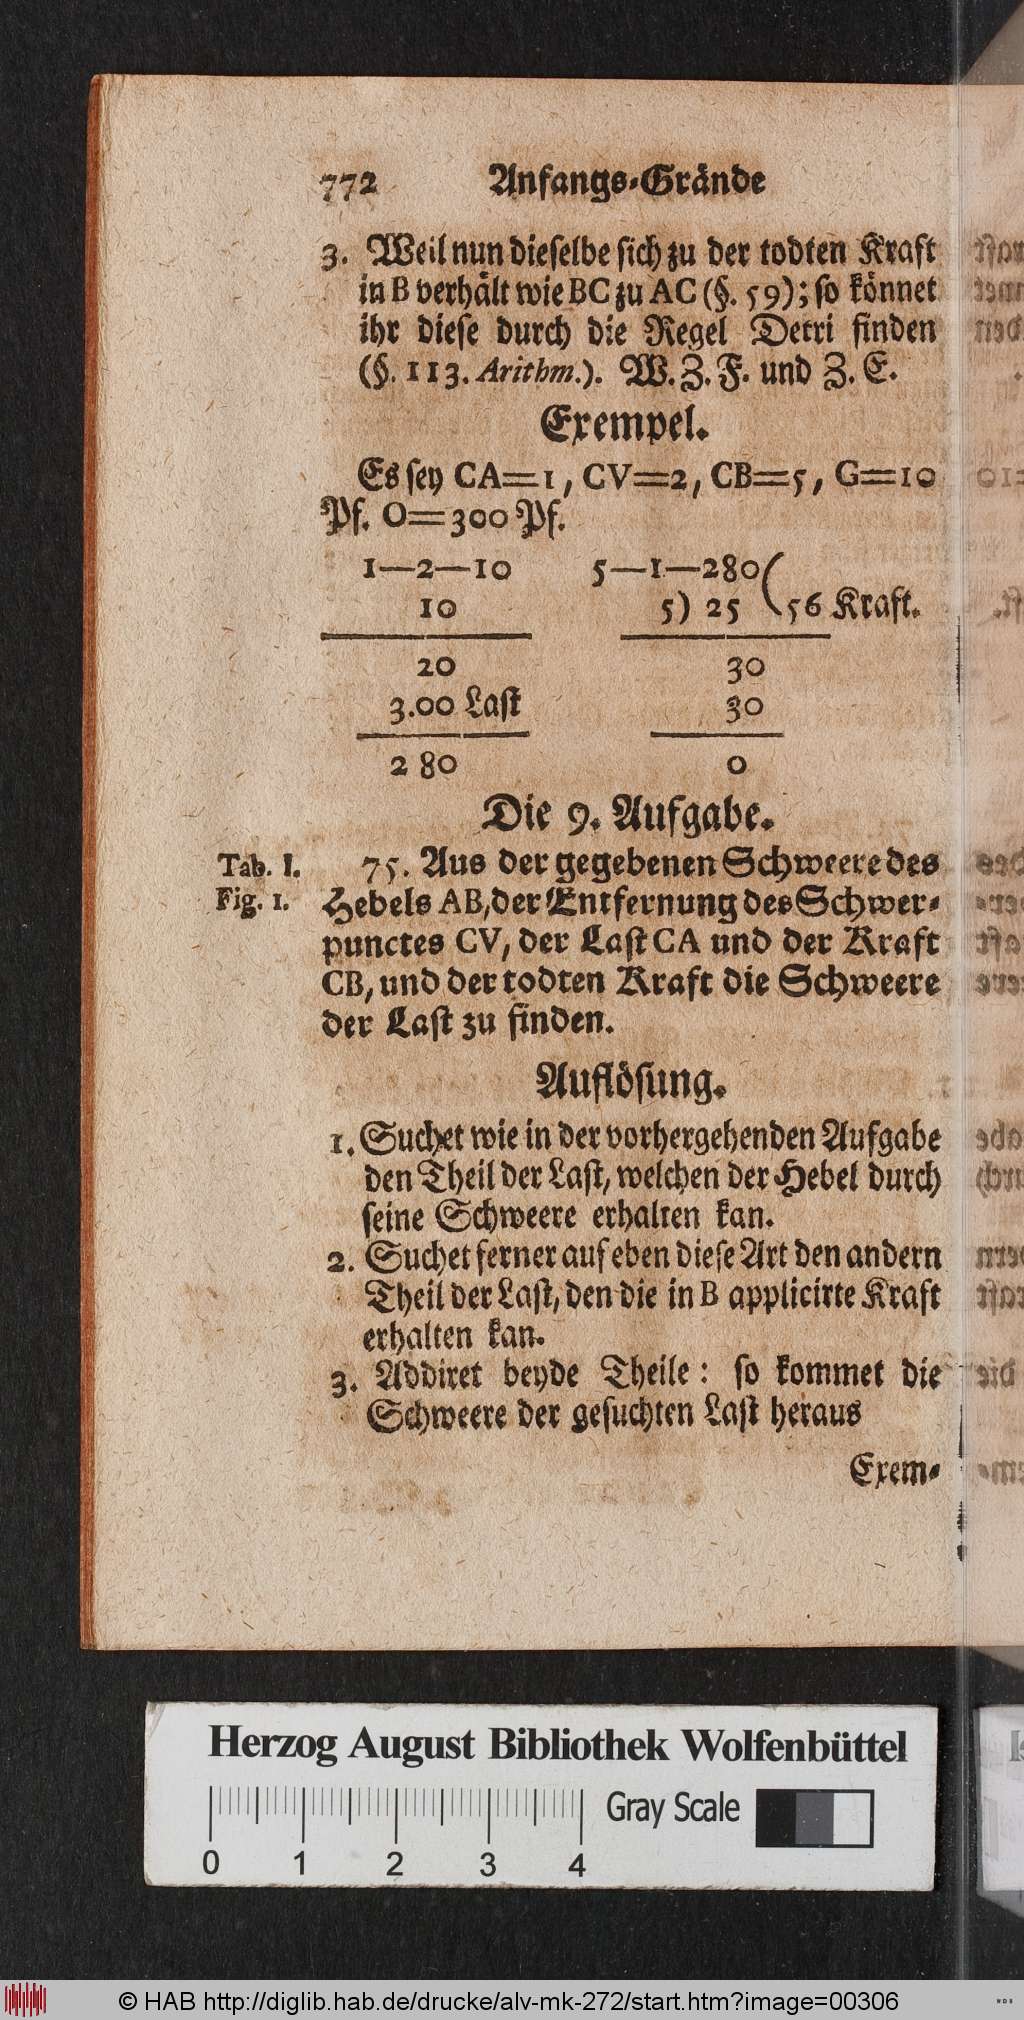 772 Anfangs-Grände
3. Weil nun dieselbe sich zu der todten Kraft
in B verhält wie BC zu AC (§. 59); so könnet
ihr diese durch die Regel Detri finden
(§. 113. Arithm.). W. Z. F. und Z. E.
Exempel.
Es sey CA=1, CV=2, CB=5, G=10
Pf. O=300 Pf.
1—2—10 5—1—280(
10 5) 25 (56 Kraft.
20 30
3.00 Last 30
2 80 0
Die 9. Aufgabe.
Tab. I. 75. Aus der gegebenen Schweere des
Fig. 1. Hebels AB, der Entfernung des Schwer-
punctes CV, der Last CA und der Kraft
CB, und der todten Kraft die Schweere
der Last zu finden.
Auflösung.
1. Suchet wie in der vorhergehenden Aufgabe
den Theil der Last, welchen der Hebel durch
seine Schweere erhalten kan.
2. Suchet ferner auf eben diese Art den andern
Theil der Last, den die in B applicirte Kraft
erhalten kan.
3. Addiret beyde Theile: so kommet die
Schweere der gesuchten Last heraus
Exem-
Herzog August Bibliothek Wolfenbüttel
Gray Scale
0 1 2 3 4
© HAB http://diglib.hab.de/drucke/alv-mk-272/start.htm?image=00306